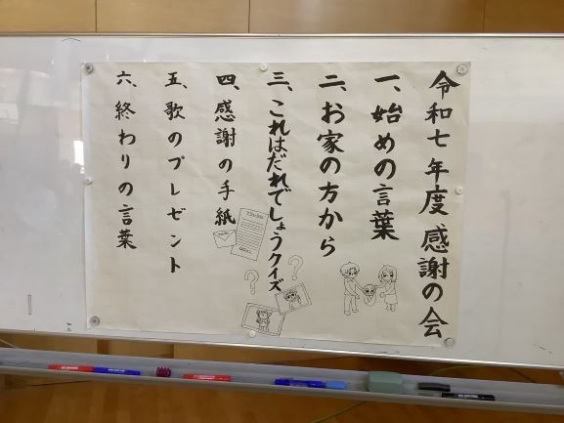 令和七年度感謝の会
一、始めの言葉
二、お家の方から
三、これはだれでしょうクイズ
四、感謝の手紙
五、歌のプレゼント
六、終わりの言葉